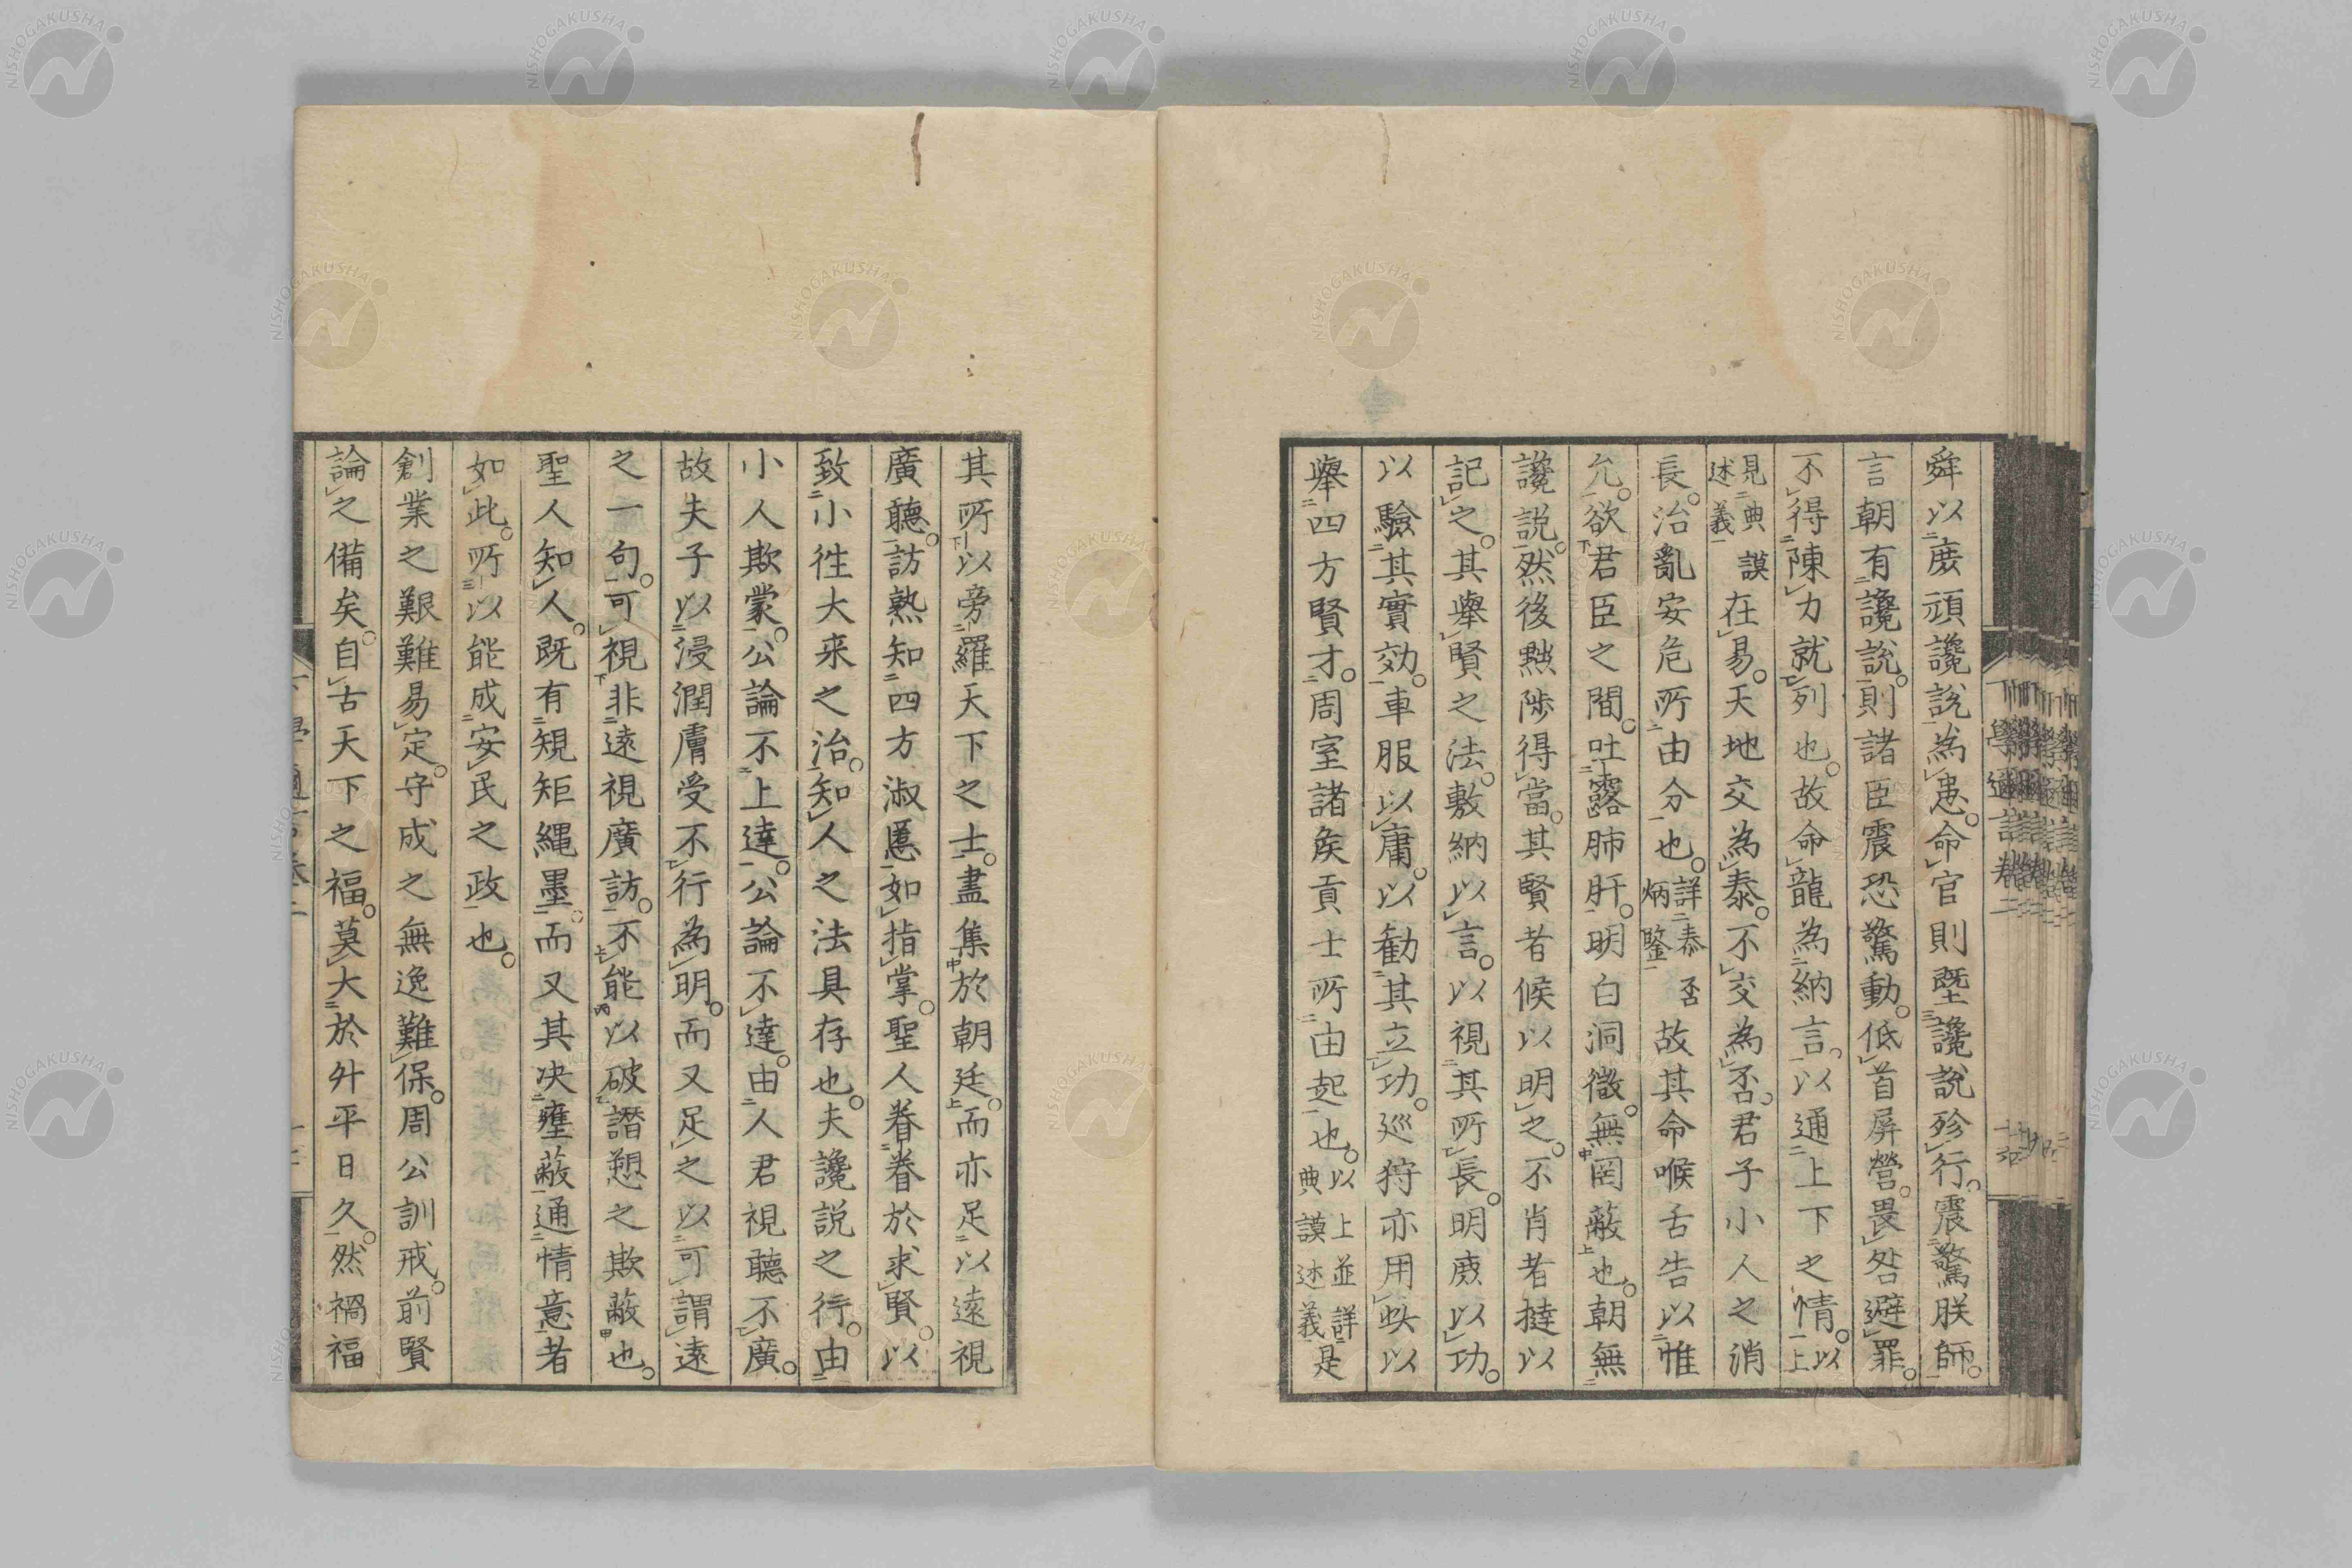 舜以庶頑讒説為患命官則曁讒說殄行震驚朕師
言朝有讒說則諸臣震恐驚動低首屏營畏咎避罪
不得陳力就列也故命龍為納言以通上下之情以上
見典謨述義在易天地交為泰不交為否君子小人之消
長治亂安危所由分也詳泰否炳鑒故其命喉舌告以惟
允欲君臣之間吐露肺肝明白洞徹無罔蔽也朝無
讒説然後黜陟得當其賢者候以明之不肖者撻以
記之其舉賢之法敷納以言以視其所長明庶以功
以驗其實効車服以庸以勸其立功巡狩亦用此以
舉四方賢才周室諸侯貢士所由起也以上並詳典謨述義是
其所以旁羅天下之士盡集於朝廷而亦足以遠視
廣聽訪熟知四方淑慝如指掌聖人眷眷於求賢以
致小徃大来之治知人之法具存也夫讒説之行由
小人欺蒙公論不上達公論不達由人君視聽不廣
故夫子以浸潤膚受不行為明而又足之以可謂遠
之一句可視非遠視廣訪不能以破譖愬之欺蔽也
聖人知人既有規矩繩墨而又其决壅蔽通情意者
如此所以能成安民之政也
創業之艱難易定守成之無逸難保周公訓戒前賢
論之備矣自古天下之福莫大於升平日久然禍福